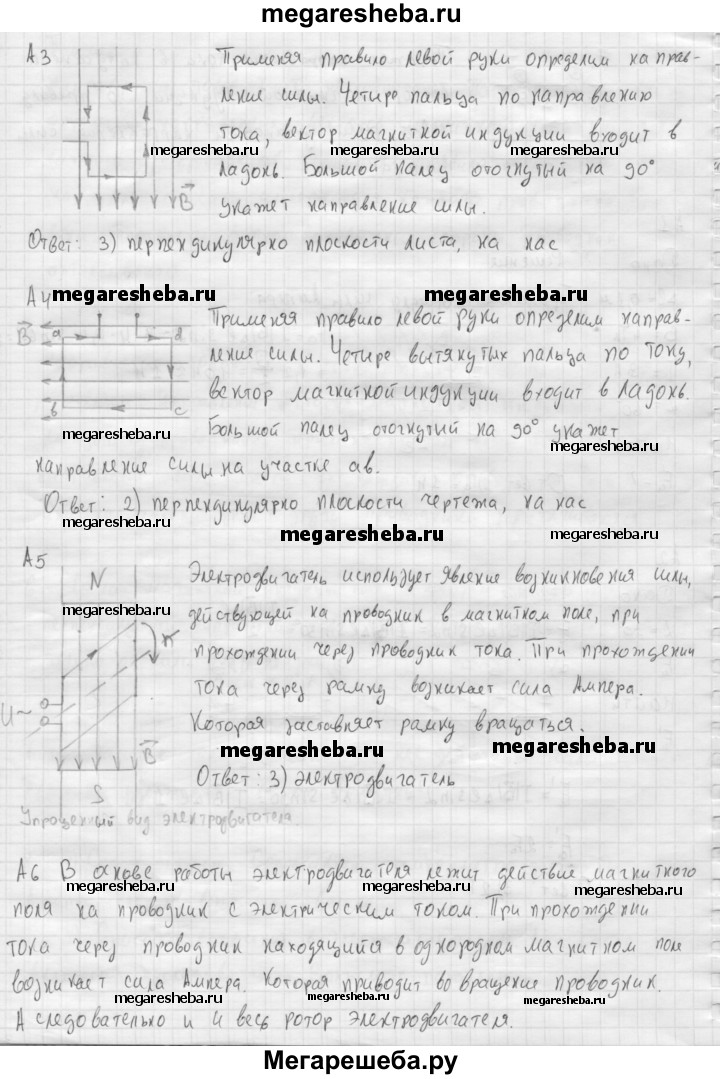 megaresheba.ru
А3
Применяя правило левой руки определим направ-
ление силы. Четыре пальца по направлению
тока, вектор магнитной индукции входит в
megaresheba.ru megaresheba.ru megaresheba.ru
ладонь. Большой палец отогнутый на 90°
B
укажет направление силы.
Ответ: 3) перпендикулярно плоскости листа, на нас
А4
megaresheba.ru megaresheba.ru
B a d
Применяя правило левой руки определим направ-
ление силы. Четыре вытянутых пальца по току,
вектор магнитной индукции входит в ладонь.
b c
Большой палец отогнутый на 90° укажет
megaresheba.ru megaresheba.ru
направление силы на участке ав.
Ответ: 2) перпендикулярно плоскости чертежа, на нас
megaresheba.ru megaresheba.ru
megaresheba.ru
А5
N
Электродвигатель использует явление возникновения силы,
megaresheba.ru megaresheba.ru
действующей на проводник в магнитном поле, при
n
прохождении через проводник тока. При прохождении
тока через рамку возникает сила Ампера.
U~
Которая заставляет рамку вращаться.
megaresheba.ru megaresheba.ru
B
Ответ: 3) электродвигатель
S
Упрощенный вид электродвигателя.
А6 В основе работы электродвигателя лежит действие магнитного
megaresheba.ru megaresheba.ru megaresheba.ru
поля на проводник с электрическим током. При прохождении
тока через проводник находящийся в однородном магнитном поле
возникает сила Ампера. Которая приводит во вращение проводник.
megaresheba.ru megaresheba.ru megaresheba.ru
А следовательно и и весь ротор электродвигателя.
Мегарешеба.ру